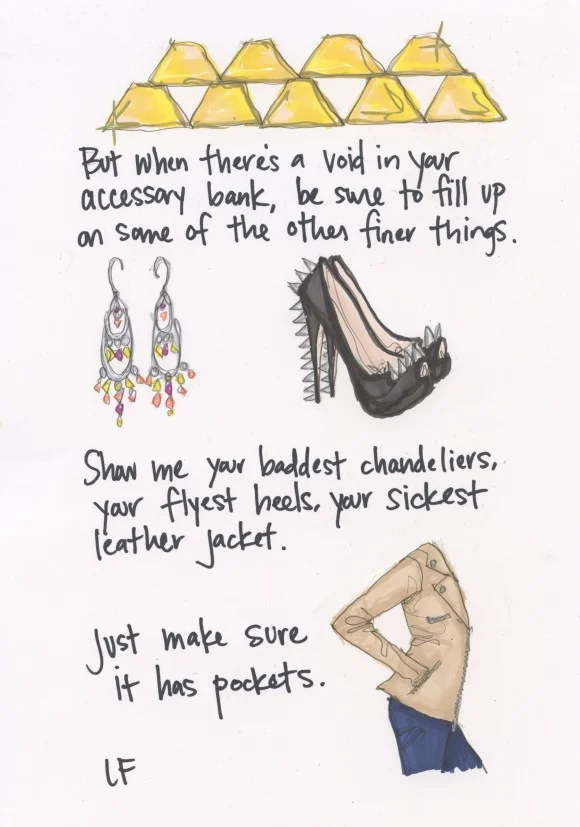 But when there's a void in your
accessory bank, be sure to fill up
on some of the other finer things.
Show me your baddest chandeliers,
your flyest heels, your sickest
leather jacket.
Just make sure
it has pockets.
LF